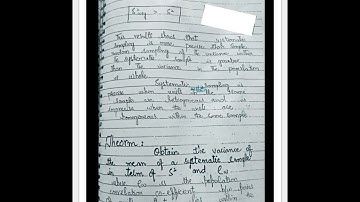 S²wsy > S²
This results shows that systematic
sampling is more precise than simple
random sampling if the variance within
the systematic sample is greater
than the variance in the population
as whole.
Systematic sampling is
precise when units within the same
sample are heterogenous and is
imprecise when to units are
homogenous within to same sample
Theorm:
Obtain the variance of
the mean of a systematic sample
in term of S² and ρw
where ρw is the population
correlation co-efficient b/w pairs
of